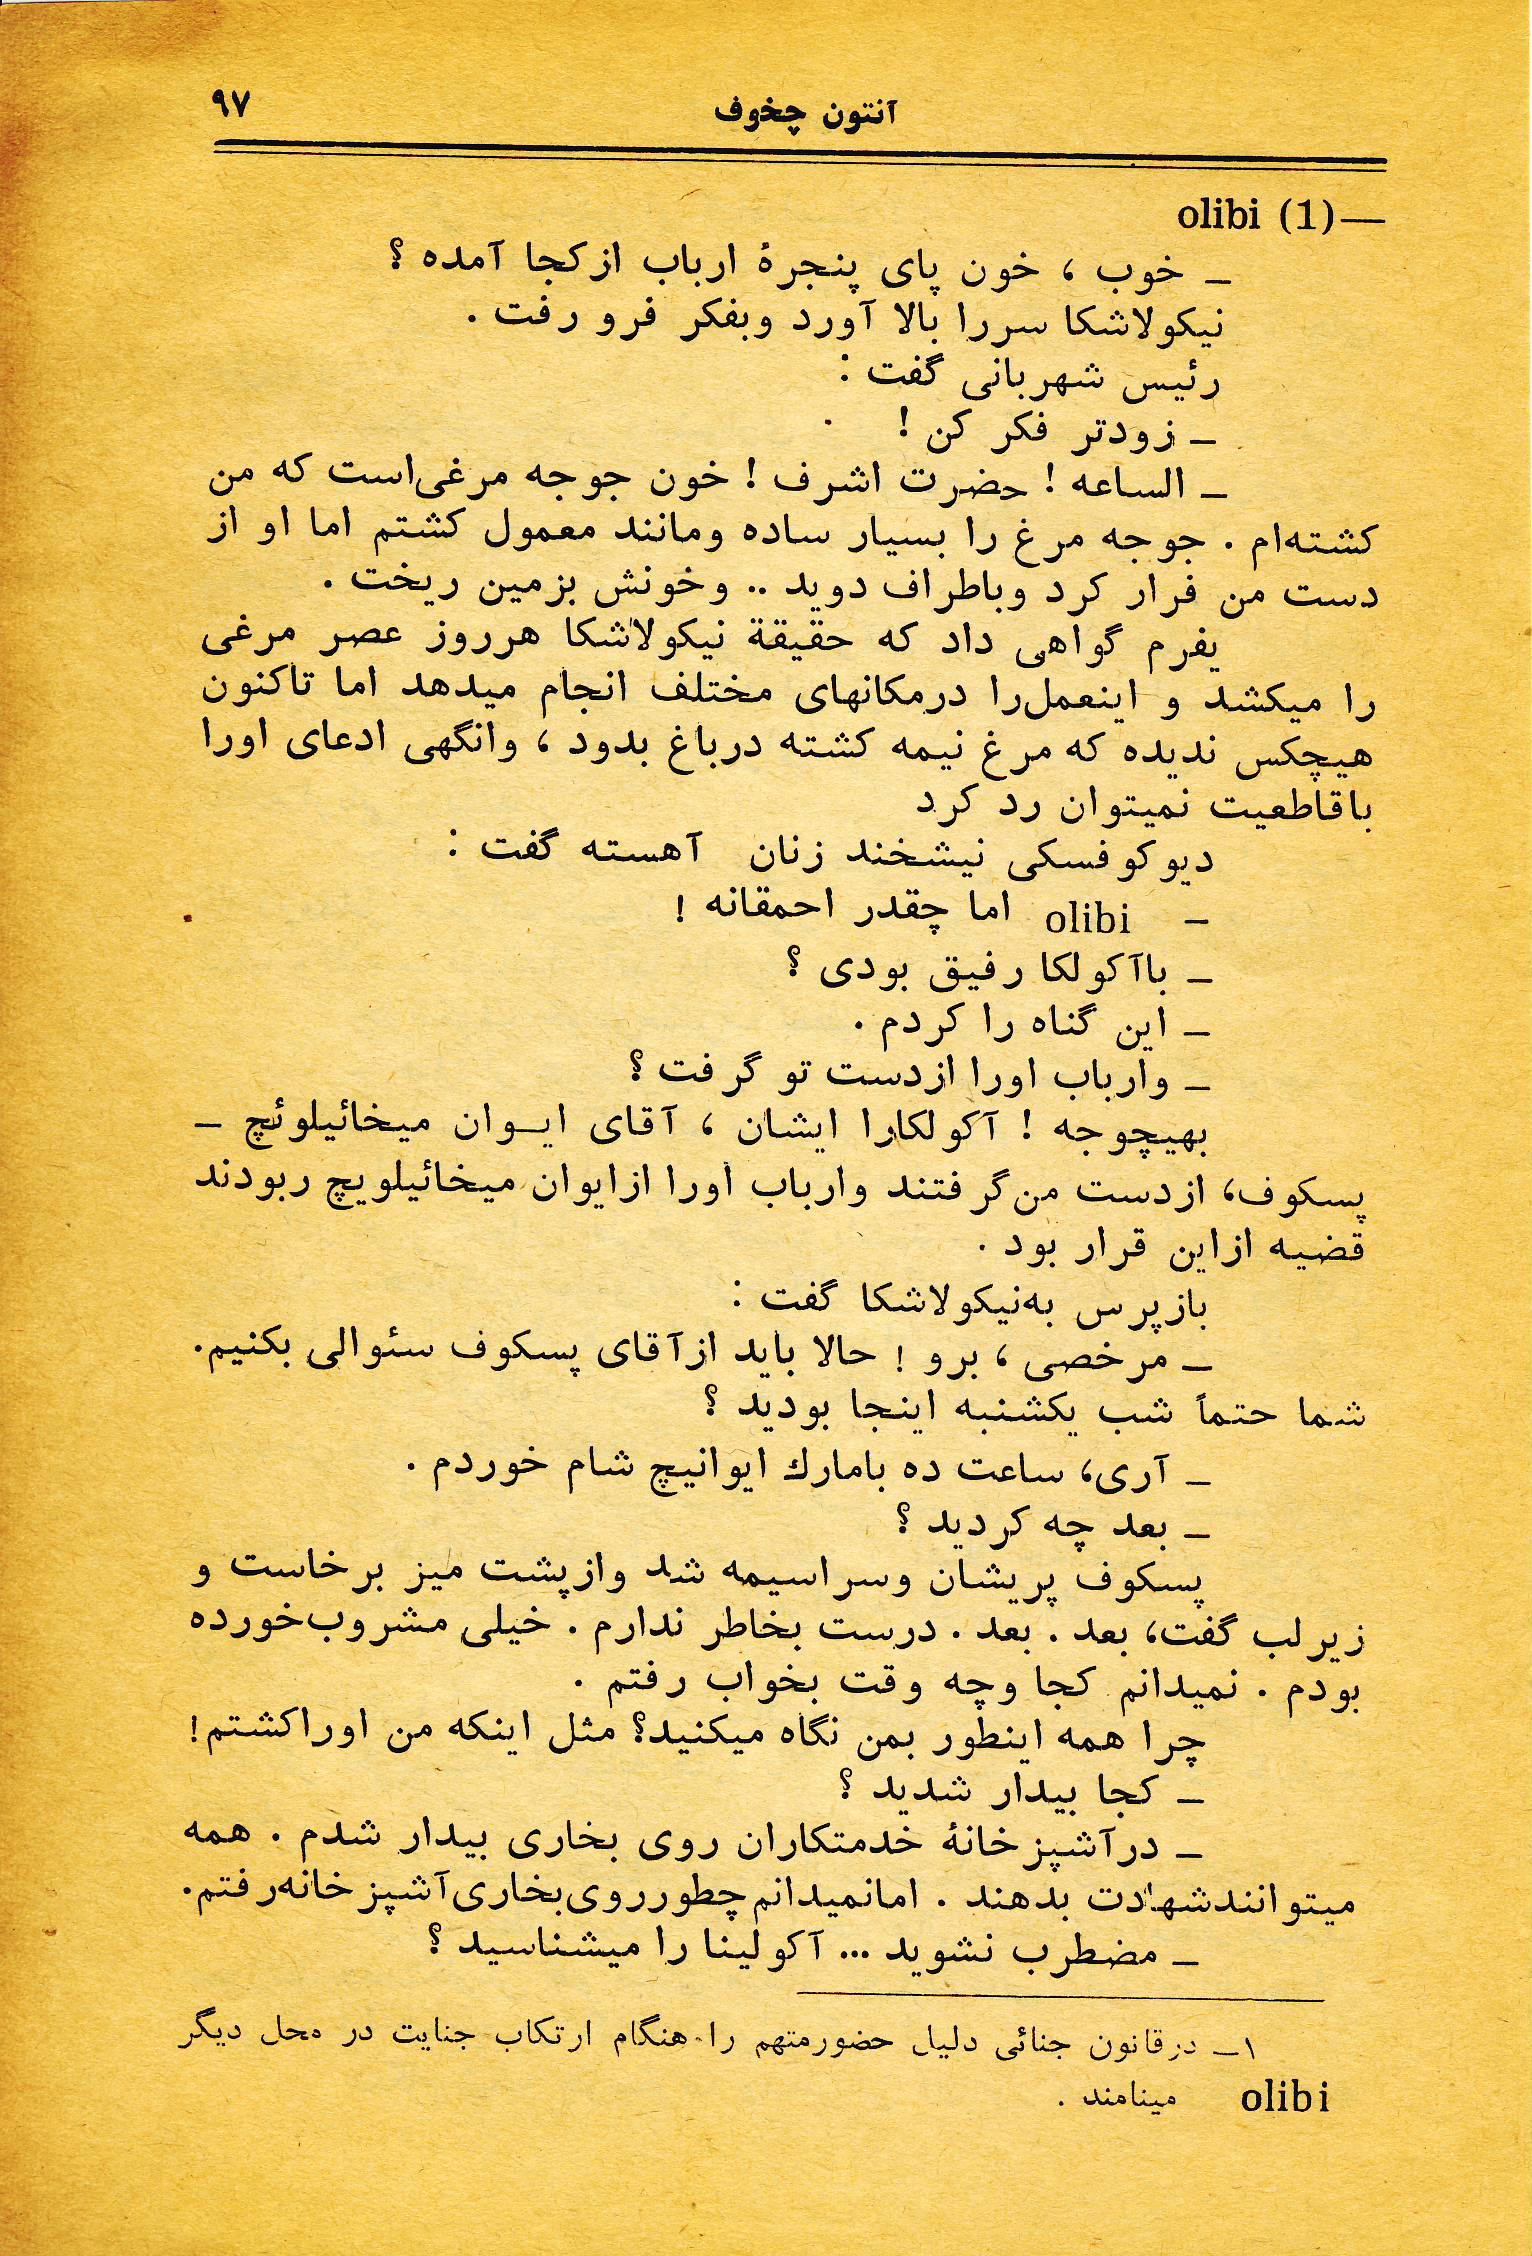 آنتون چخوف ۹۷
—(1) olibi
ـ خوب ، خون پای پنجرهٔ ارباب ازکجا آمده ؟
نیکولاشکا سررا بالا آورد وبفکر فرو رفت .
رئیس شهربانی گفت :
ـ زودتر فکر کن !
ـ الساعه ! حضرت اشرف ! خون جوجه مرغی‌است که من
کشته‌ام . جوجه مرغ را بسیار ساده ومانند معمول کشتم اما او از
دست من فرار کرد وباطراف دوید .. وخونش بزمین ریخت .
یفرم گواهی داد که حقیقة نیکولاشکا هرروز عصر مرغی
را میکشد و اینعمل‌را درمکانهای مختلف انجام میدهد اما تاکنون
هیچکس ندیده که مرغ نیمه کشته درباغ بدود ، وانگهی ادعای اورا
باقاطعیت نمیتوان رد کرد
دیوکوفسکی نیشخند زنان آهسته گفت :
ـ olibi اما چقدر احمقانه !
ـ باآکولکا رفیق بودی ؟
ـ این گناه را کردم .
ـ وارباب اورا ازدست تو گرفت ؟
بهیچوجه ! آکولکارا ایشان ، آقای ایـوان میخائیلوئچ ـ
پسکوف، ازدست من‌گرفتند وارباب اورا ازایوان میخائیلویچ ربودند
قضیه ازاین قرار بود .
بازپرس به‌نیکولاشکا گفت :
ـ مرخصی ، برو ! حالا باید ازآقای پسکوف سئوالی بکنیم.
شما حتماً شب یکشنبه اینجا بودید ؟
ـ آری، ساعت ده بامارك ایوانیچ شام خوردم .
ـ بعد چه کردید ؟
پسکوف پریشان وسراسیمه شد وازپشت میز برخاست و
زیرلب گفت، بعد . بعد . درست بخاطر ندارم . خیلی مشروب‌خورده
بودم . نمیدانم کجا وچه وقت بخواب رفتم .
چرا همه اینطور بمن نگاه میکنید؟ مثل اینکه من اوراکشتم!
ـ کجا بیدار شدید ؟
ـ درآشپزخانهٔ خدمتکاران روی بخاری بیدار شدم . همه
میتوانندشهادت بدهند . امانمیدانم‌چطورروی‌بخاری‌آشپزخانه‌رفتم.
ـ مضطرب نشوید ... آکولینا را میشناسید ؟
۱ـ درقانون جنائی دلیل حضورمتهم را هنگام ارتکاب جنایت در محل دیگر
olibi مینامند .